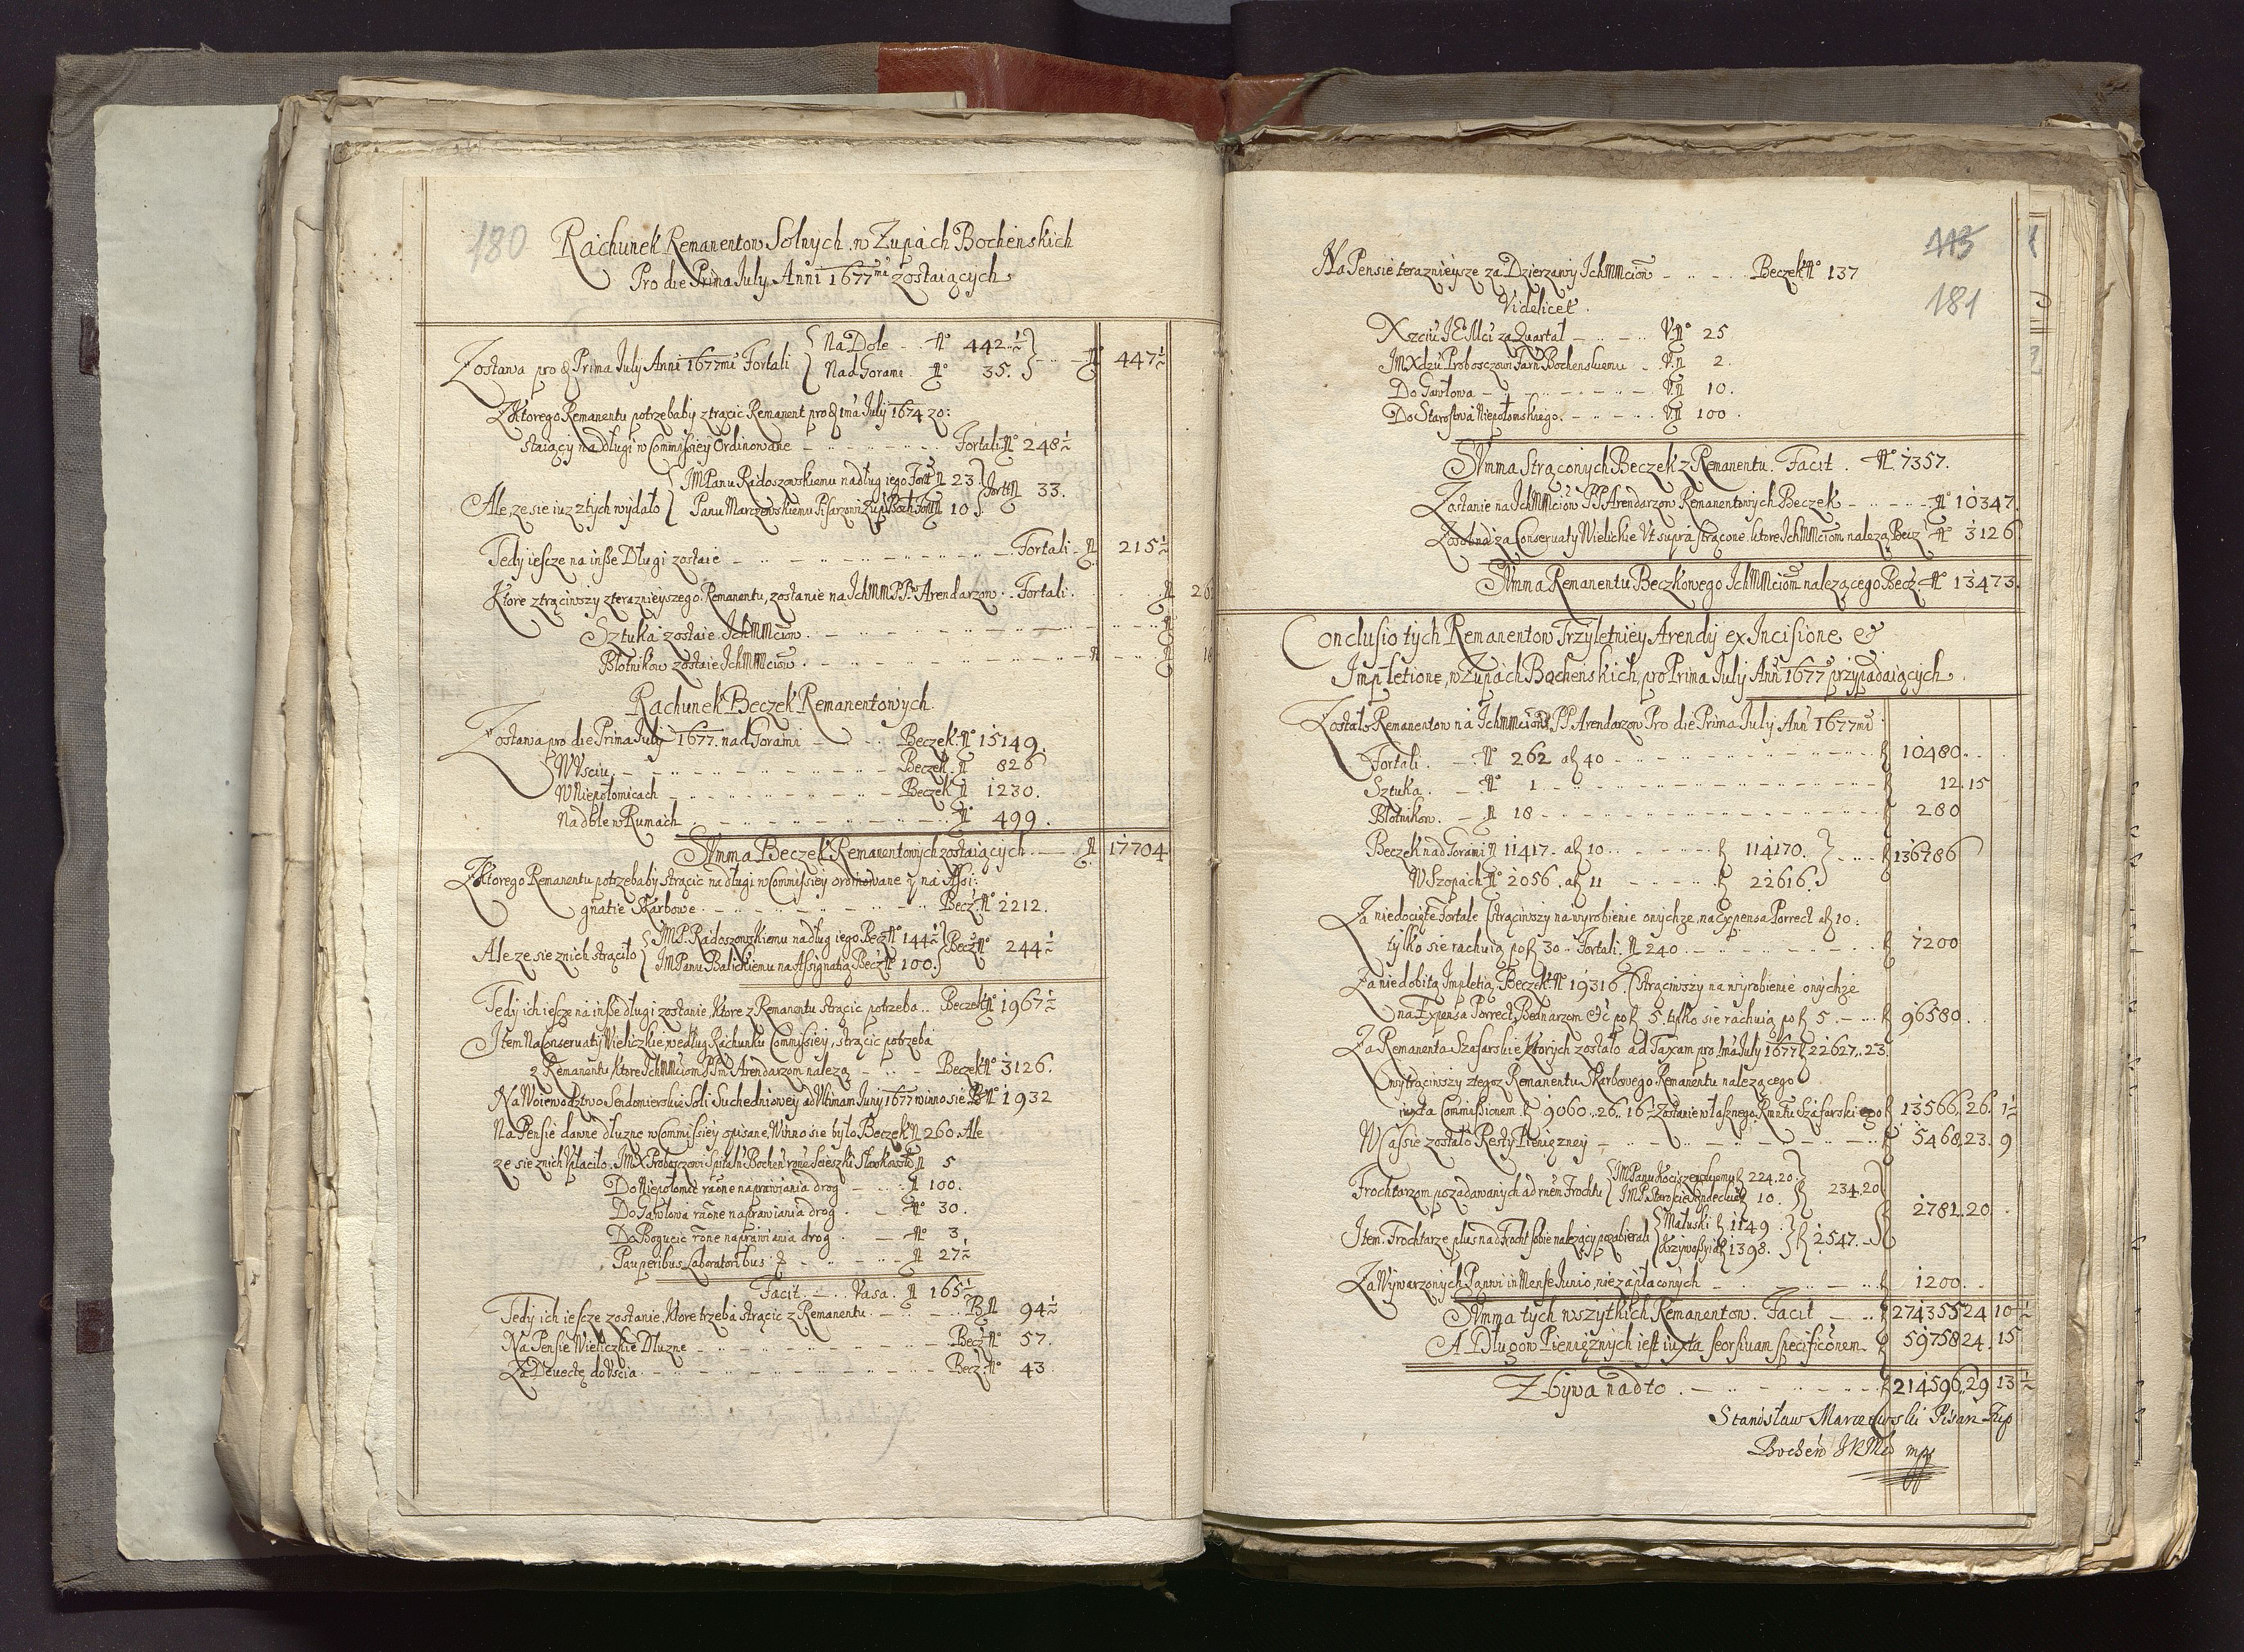 180
Rachunek Remanentow Solnych w Zupach Bochenskich
Pro die Prima July Anni 1677mi zostaiących
Zostawa pro & Prima July Anni 1677mi Fortali { Na Dole N° 442 ½ } N° 447 ½
Nad Gorami N° 35.
Z Ktorego Remanentu potrzebaby ztrącic Remanent pro & 1ma July 1674 zo:
staiący na długi w Commissiey Ordinowane Fortali N° 248 ½
JM Panu Radoszowskiemu na dług iego Fort N 23.
Ale, ze sie iuz z tych wydało Fort N 33.
Panu Marczowskiemu Pisarzowi Zup Boch Fort N 10
Tedy iescze na insze Długi zostaie Fortali N 215 ½
Ktore ztrąciwszy z teraznieyszego Remanentu, zostanie na Ich MM PP. Arendarzow. Fortali. N 26
Sztuka zostaie Ich MMciow. N
Błotnikow zostaie Ich MMciow. N 18
Rachunek Beczek Remanentowych.
Zostawa pro die Prima July 1677. nad Gorami Beczek N° 15149.
W Vsciu. Beczek N 826
W Niepołomicach Beczek N 1230.
Na dole w Rumach N° 499.
Summa Beczek Remanentowych zostaiących N 17704
Z Ktorego Remanentu potrzebaby strącic na długi w Commissiey ordinowane y na Assi:
gnatie Skarbowe Becz. N° 2212.
JM P. Radoszowskiemu na dług iego Becz N° 144 ½
Ale ze sie z nich strąciło Becz N° 244 ½
JM Panu Balickiemu na Assignatią Becz N° 100.
Tedy ich iescze na insze długi zostanie, Ktore z Remanentu strącic potrzeba Beczek N° 1967 ½
Item Na Conservaty Wieliczkie według Rachunku Commissiey, strącic potrzeba
z Remanentu, Ktore Ich MMciom PPm Arendarzom nalezą Beczek N° 3126.
Na Woiewodztwo Sendomierskie Soli Suchedniowey ad Vltimam Juny 1677 winno sie B N° 1932
Na Pensie dawne dłuzne w Commissiey opisane, Winno sie było Beczek N 260. Ale
ze sie z nich Vpłaciło. JMX Proboszczowi Spitaln Bochen rone Scieszki Sławkowski N 5
Do Niepołomic raone naprawiania drog N 100.
Do Gawłowa raone naprawiania drog N° 30.
Do Bogucic rone naprawiania drog N° 3
Pauperibus Laboratoribus N 27 ½
Facit Vasa N 165 ½
Tedy ich iescze zostanie, Ktore trzeba strącic z Remanentu B N 94 ½
Na Pensie Wieliczkie Dłuzne Becz N° 57.
Za Devectę do Vscia Becz. N° 43
113
181
Na Pensie teraznieysze za Dzierzawy Ich MMciow Beczek N° 137
Videlicet.
Xzciu JE Mci za Quartał V. N° 25
JM Xdzu Proboszczowi Farn Bochenskiemu V. N 2.
Do Gawłowa V. N 10.
Do Starostwa Niepołomskiego. V. N 100.
Summa Strąconych Beczek z Remanentu. Facit. N° 7357.
Zostanie na Ich MMciow PP Arendarzow Remanentowych Beczek N° 10347.
Zosobna za Conservaty Wielickie Vt supra strącone. ktore Ich MMciom nalezą Becz N° 3126
Summa Remanentu Beczkowego Ich MMciom nalezącego Becz. N° 13473.
Conclusio tych Remanentow Trzyletniey Arendy ex Incisione &
Impletione, w Zupach Bochenskich, pro Prima July Anni 1677 przypadaiących.
Zostało Remanentow na Ich mmciow PP. Arendarzow Pro die Prima July Ann 1677mi
Fortali. N° 262 a f 40 f 10480.
Sztuka. N° 1 f 12.15
Błotnikow. N 18 f 280
Beczek nad Gorami N 11417. a f 10 f 114170. } f 136786
W Szopach N° 2056. a f 11 f 22616.
Za niedocięte Fortale (strąciwszy na wyrobienie onychze, na Expensa Porrect a f 10:
tylko sie rachuią po f 30. Fortali. N 240 f 7200
Za niedobitą Impletią, Beczek N° 19316. (Strąciwszy na wyrobienie onychze
na Expensa Porrect, Bednarzom etc po f 5. tylko sie rachuią po f 5. f 96580.
Za Remanenta Szafarskie Ktorych zostało ad Taxam pro 1ma July 1677 f 22627..23
(wytrąciwszy z tegoz Remanentu Skarbowego Remanentu nalezącego
iuxta Commissionem f 9060..26..16 ½ Zostanie własznego Rmntu Szafarskiego f 13566.26. 1 ½
W Cassie zostało Resty Pienięzney f 5468.23. 9
Frochtarzom pozadawanych ad rnem Frochtu { JM Panu Kociszewskiemu f 224.20. } 234.20
JM P. Staroscie Sądeckie f 10.
f 2781.20.
Item. Frochtarze plus nad Frocht sobie nalezący pozabierali { Małuski f 1149. } f 2547.
Krzywoszyia f 1398.
Za Wywarzonych Panwi in Mense Junio, niezapłaconych f 1200.
Summa tych wszytkich Remanentow. Facit f 274355 24 10 ½
A Długow Pienięznych iest iuxta seorsivam specificonem f 59758 24. 15
Zbywa nadto f 214596..29 13 ½
Stanisław Marczowski Pisarz Zup
Bochen JKMci mpp